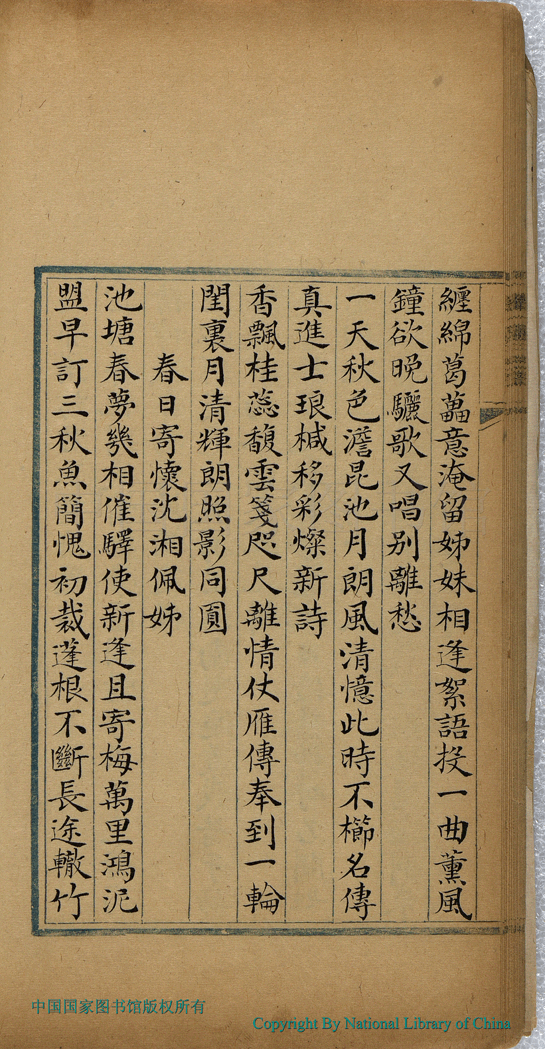 纏綿葛藟意淹留姊妹相逢絮語投一曲薰風
鐘欲晚驪歌又唱别離愁
一天秋色澹昆池月朗風清憶此時不櫛名傳
真進士琅椷移彩燦新詩
香飄桂蕊馥雲箋咫尺離情仗雁傳奉到一輪
閨裏月清輝朗照影同圓
春日寄懷沈湘佩姊
池塘春夢幾相催驛使新逢且寄梅萬里鴻泥
盟早訂三秋魚簡愧初裁蓬根不斷長途轍竹
中国国家图书馆版权所有
Copyright By National Library of China